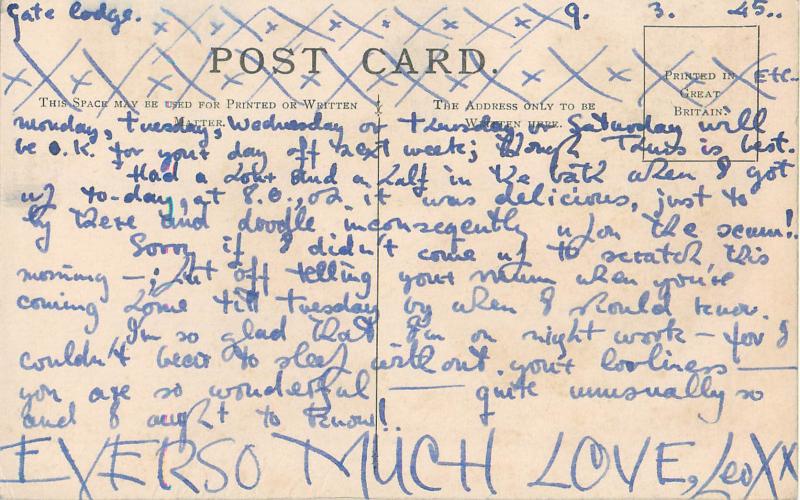 Gate lodge. 9. 3. 45..
POST CARD.
ETC..
PRINTED IN
GREAT
BRITAIN.
THIS SPACE MAY BE USED FOR PRINTED OR WRITTEN
MATTER.
THE ADDRESS ONLY TO BE
WRITTEN HERE.
monday, tuesday, wednesday or thursday or saturday will
be O.K. for your day off next week; though Thurs is best.
Had a hour and a half in the bath when I got
up to-day, at 8.0., oh it was delicious, just to
ly there and doodle inconsequently upon the scum!.
Sorry if I didn't come up to scratch, this
morning —; put off telling your mum when you're
coming home till tuesday by when I should know.
I'm so glad that I'm on night work — for I
couldn't bear to sleep without your loveliness —
you are so wonderful — quite unusually so
and I ought to know!.
EVERSO MUCH LOVE, Leo XX